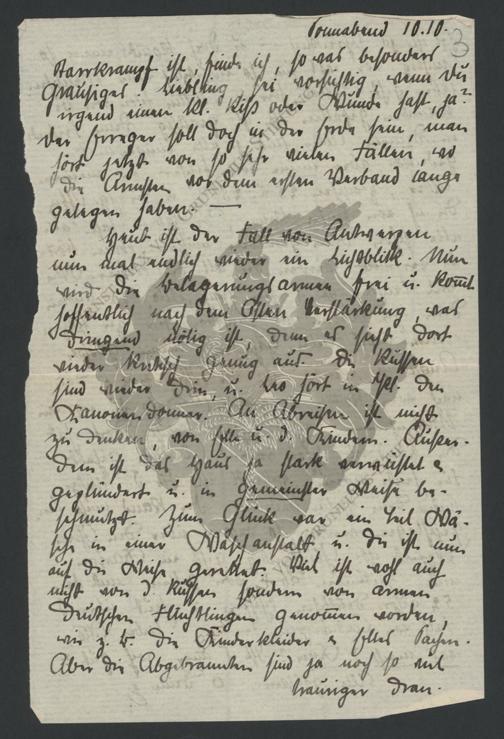 Sonnabend 10.10.
3
Starrkrampf ist, finde ich, so was besonders
Grausiges. Liebling sei vorsichtig, wenn Du
irgend einen kl. Riß oder Wunde hast, ja?
Der Erreger soll doch in der Erde sein, man
hört jetzt von so sehr vielen Fällen, wo
die Ärmsten vor dem ersten Verband lange
gelegen haben. —
Heut ist der Fall von Antwerpen
nun mal endlich wieder ein Lichtblick. Nun
wird die Belagerungsarmee frei u. kommt
hoffentlich nach dem Osten Verstärkung, was
dringend nötig ist, denn es sieht dort
wieder kritisch genug aus. Die Russen
sind wieder drin, u. hört in den
Kanonendonner. An Abreisen ist nicht
zu denken, von u. d. Kindern. Außer-
dem ist das Haus ja stark verwüstet &
geplündert u. in gemeinster Weise be-
schmutzt. Zum Glück war ein Teil Wä-
sche in einer Waschanstalt u. die ist nun
auf die Weise gerettet. Viel ist wohl auch
nicht von d. Russen sondern von armen
deutschen Flüchtlingen genommen worden,
wie z. B. die Kinderkleider & Sachen.
Aber die Abgebrannten sind ja noch so viel
trauriger dran.